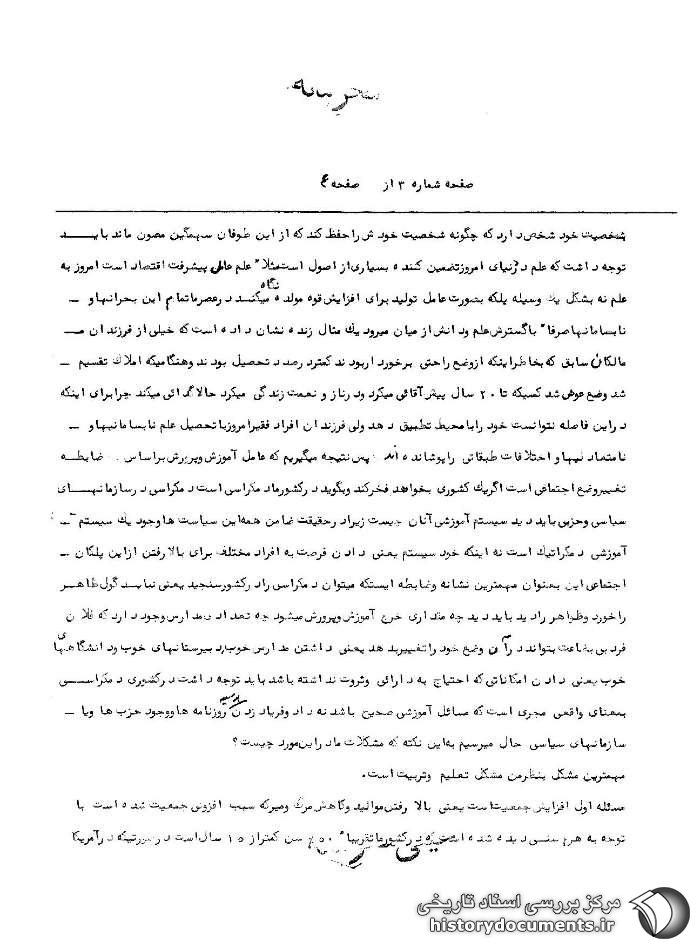 محرمانه
صفحه شماره ۳ از صفحه ۴
شخصیت خود شخص دارد که چگونه شخصیت خودش را حفظ کند که از این طوفان سهمگین مصون ماند باید
توجه داشت که علم دردنیای امروز تضمین کننده بسیاری از اصول است مثلا" علم عامل پیشرفت اقتصاد است امروز به
علم نه بشکل یك وسیله بلکه بصورت عامل تولید برای افزایش قوه مولده نگاه میکنند در عصر ما تمام این بحرانها و ـ
نابسامانیها صرفا" با گسترش علم و دانش از میان میرود یك مثال زنده نشان داده است که خیلی از فرزندان مـــ
مالکان سابق که بخاطر اینکه از وضع راحتی برخوردار بودند کمتر درصدد تحصیل بودند و هنگامیکه املاك تقسیم ـ
شد وضع عوض شد کسیکه تا ۲۰ سال پیش آقائی میکرد و در ناز و نعمت زندگی میکرد حالا گدائی میکند چرا برای اینکه
در این فاصله نتوانست خود را با محیط تطبیق دهد ولی فرزندان افراد فقیر امروز با تحصیل علم نابسامانیها و ـ
نامتعادلیها و اختلافات طبقاتی را پوشانده اند پس نتیجه میگیریم که عامل آموزش و پرورش بر اساس . ضابطــه
تغییر وضع اجتماعی است اگر یك کشوری بخواهد فخر کند و بگوید در کشور ما دمکراسی است دمکراسی در سازمانهـای
سیاسی و حزبی باید دید سیستم آموزشی آنان چیست زیرا در حقیقت ضامن همه این سیاست ها وجود یك سیستم ـ
آموزشی دمکراتیك است نه اینکه خود سیستم یعنی دادن فرصت به افراد مختلف برای بالا رفتن از این پلکان ـ
اجتماعی این بعنوان مهمترین نشانه و ضابطه ایستکه میتوان دمکراسی را در کشور سنجید یعنی نباید گول ظاهـر
را خورد و ظواهر را دید باید دید چه مقداری خرج آموزش و پرورش میشود چه تعداد مدارس وجود دارد که فلان
فرد بی بضاعت بتواند در آن وضع خود را تغییر دهد یعنی داشتن مدارس خوب دبیرستانهای خوب و دانشگاههای
خوب یعنی دادن امکاناتی که احتیاج به دارائی و ثروت نداشته باشد باید توجه داشت در کشوری دمکراســی
بمعنای واقعی مجری است که مسائل آموزشی صحیح باشد نه داد و فریاد زدن بوسیله روزنامه ها و وجود حزب ها و یا ـ
سازمانهای سیاسی حال میرسیم به این نکته که مشکلات ما در این مورد چیست؟
مهمترین مشکل بنظر من مشکل تعلیم و تربیت است.
مسئله اول افزایش جمعیت است یعنی بالا رفتن موالید و کاهش مرگ و میر که سبب افزونی جمعیت شده است با
توجه به هرم سنی دیده شده است که در کشور ما تقریبا" ۵۰٪ سن کمتر از ۱۵ سال است در صورتیکه در آمریکا
مرکز بررسی اسناد تاریخی
historydocuments.ir